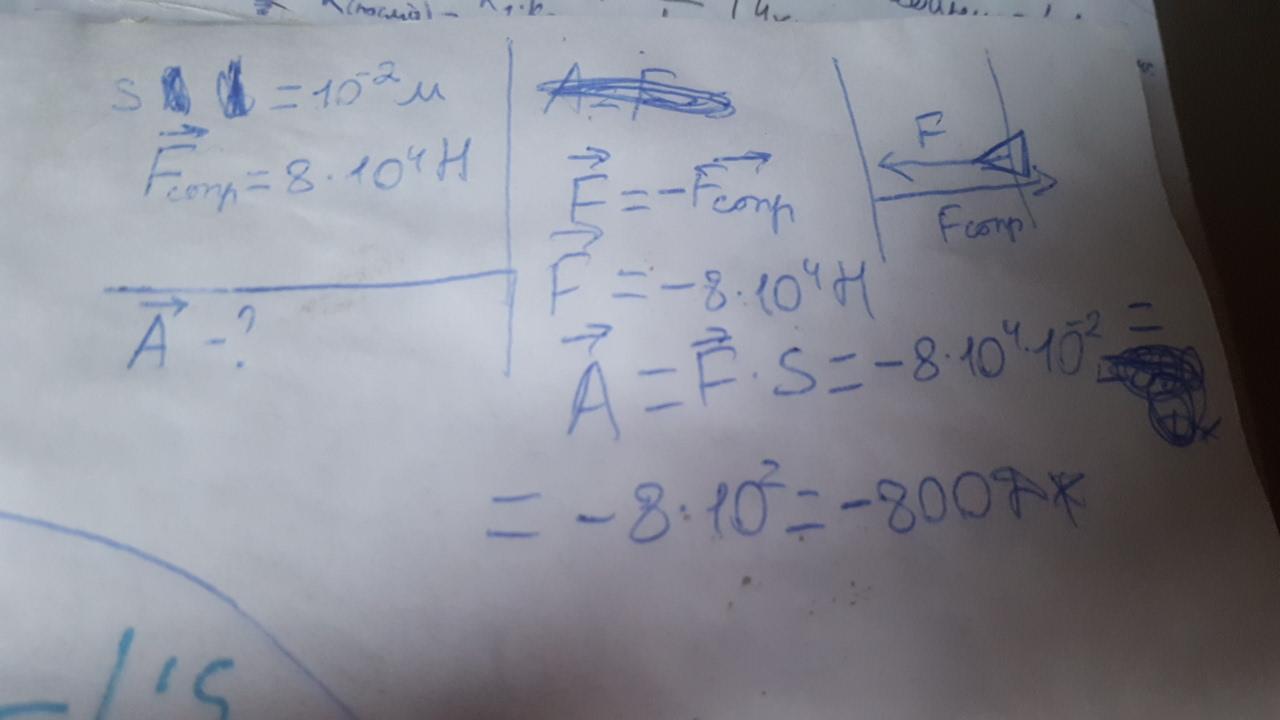 S = 10⁻² м
F⃗сопр = 8·10⁴ Н
A⃗ - ?
F⃗ = -F⃗сопр
F⃗ = -8·10⁴ Н
A⃗ = F⃗ · S = -8·10⁴·10⁻² =
= -8·10² = -800 Дж
F
Fсопр